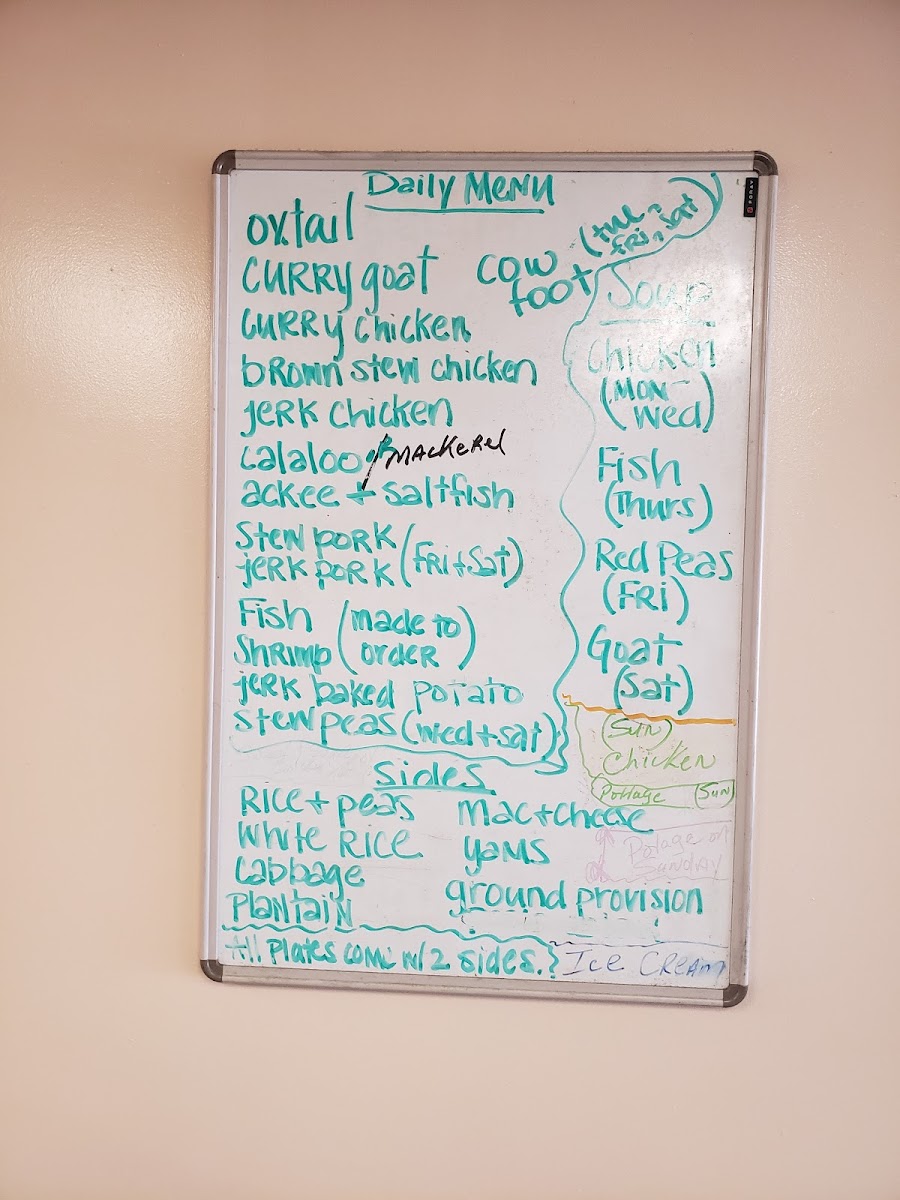 Daily Menu
oxtail
CURRY goat
CURRY chicken
bRown stew chicken
jERK chicken
Calaloo / MACKeRel
ackee + saltfish
Stew poRK
jeRK poRK (FRi + Sat)
Fish
SHRimp (made to order)
jeRK baked potato
Stew peas (Wed + Sat)
Cow foot (tue, FRi, Sat)
Soup
Chicken
(MON-
Wed)
Fish
(Thurs)
Red Peas
(FRi)
Goat
(Sat)
(Sun)
Chicken
Pottage (Sun)
Sides
Rice + peas
White Rice
Cabbage
Plantain
Mac + cheese
Yams
ground provision
Potage on
Sunday
All Plates come w/ 2 sides.
Ice Cream